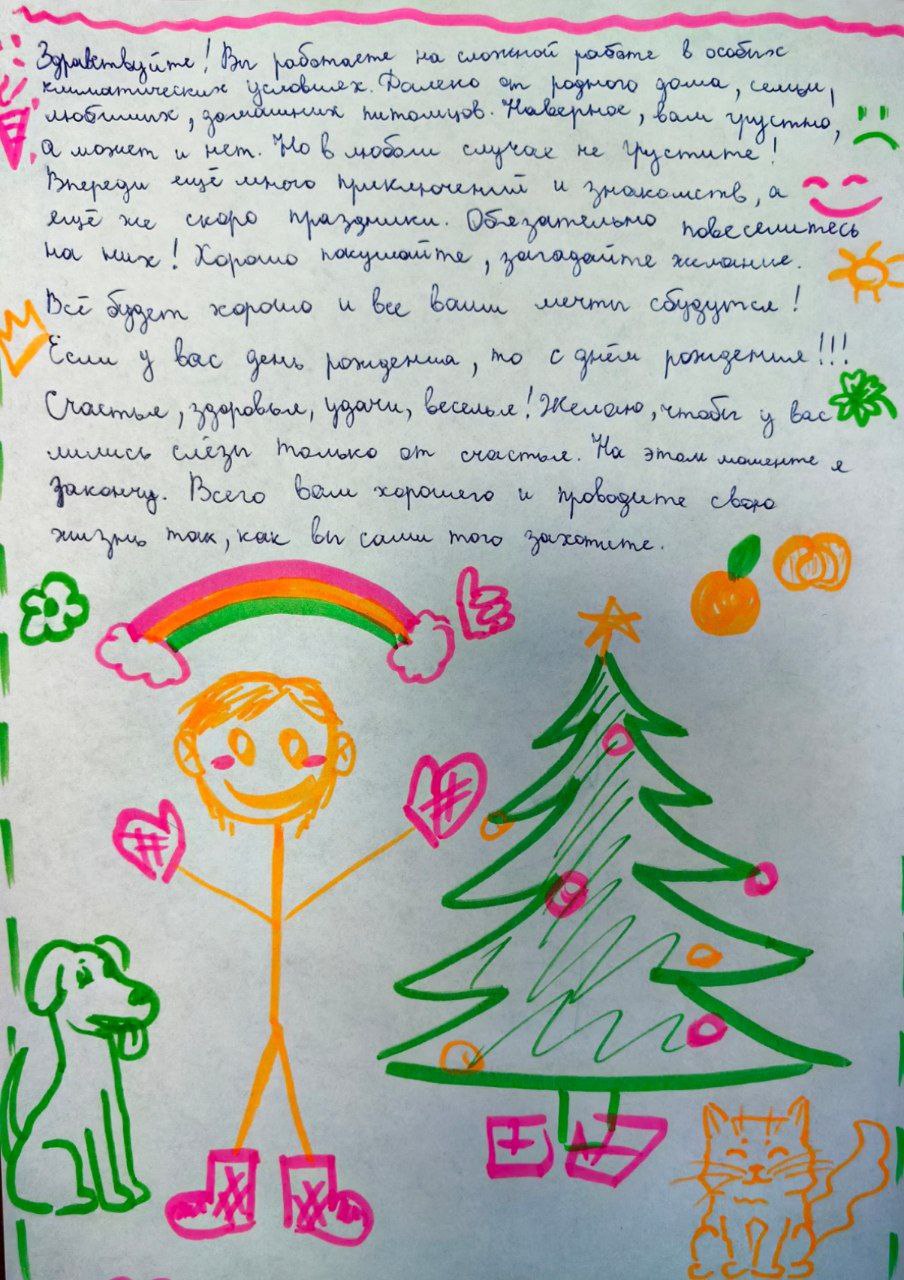 Здравствуйте! Вы работаете на сложной работе в особых
климатических условиях. Далеко от родного дома, семьи,
любимых, домашних питомцев. Наверное, вам грустно,
а может и нет. Но в любом случае не грустите!
Впереди ещё много приключений и знакомств, а
ещё же скоро праздники. Обязательно повеселитесь
на них! Хорошо покушайте, загадайте желание.
Всё будет хорошо и все ваши мечты сбудутся!
Если у вас день рождения, то с днём рождения!!!
Счастья, здоровья, удачи, веселья! Желаю, чтобы у вас
лились слёзы только от счастья. На этом моменте я
закончу. Всего вам хорошего и проводите свою
жизнь так, как вы сами того захотите.